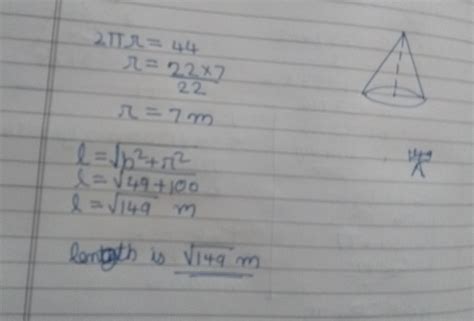 2πr = 44
r = 22×7
22
r = 7m
l = √h²+r²
l = √49+100
l = √149 m
length is √149 m
149